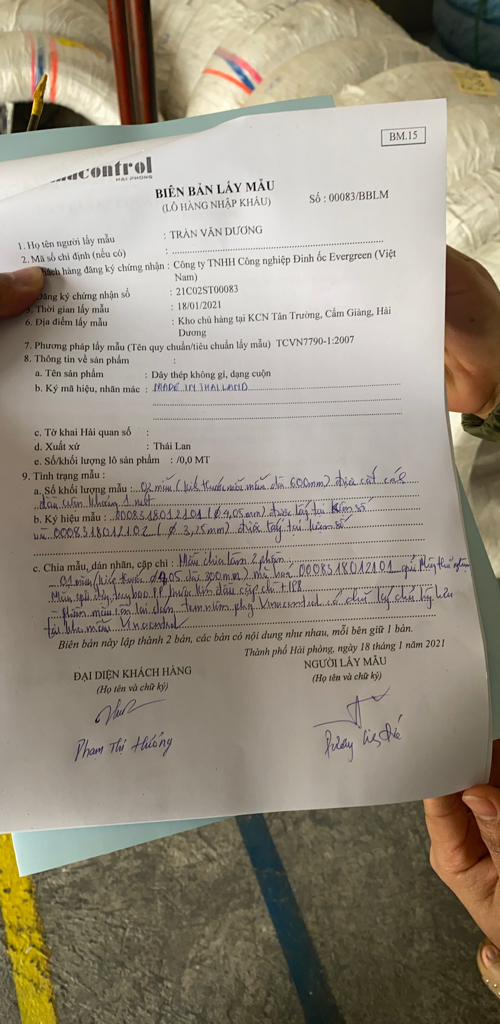 BM.15
control
HẢI PHÒNG
BIÊN BẢN LẤY MẪU
(LÔ HÀNG NHẬP KHẨU)
Số : 00083/BBLM
1. Họ tên người lấy mẫu : TRẦN VĂN DƯƠNG
2. Mã số chỉ định (nếu có) :
hách hàng đăng ký chứng nhận : Công ty TNHH Công nghiệp Đinh ốc Evergreen (Việt
Nam)
Đăng ký chứng nhận số : 21C02ST00083
Thời gian lấy mẫu : 18/01/2021
6. Địa điểm lấy mẫu : Kho chủ hàng tại KCN Tân Trường, Cẩm Giàng, Hải
Dương
7. Phương pháp lấy mẫu (Tên quy chuẩn/tiêu chuẩn lấy mẫu) TCVN7790-1:2007
8. Thông tin về sản phẩm :
a. Tên sản phẩm : Dây thép không gỉ, dạng cuộn
b. Ký mã hiệu, nhãn mác : MADE IN THAILAND
c. Tờ khai Hải quan số :
d. Xuất xứ : Thái Lan
e. Số/khối lượng lô sản phẩm : /0,0 MT
9. Tình trạng mẫu :
a. Số khối lượng mẫu : 02 mẫu (kích thước mỗi mẫu dài 600mm) được cắt cách
đầu cuộn khoảng 1 mét
b. Ký hiệu mẫu : 0008318012101 (Ø 4,05mm) được lấy tại kiểm số
và 0008318012102 (Ø 3,25mm) được lấy tại kiểm số
c. Chia mẫu, dán nhãn, cặp chì : Mẫu chia làm 2 phần
- 01 mẫu (kích thước Ø4,05 dài 300mm) mã hoá 0008318012101 gửi Phòng thử nghiệm
Mẫu
- Phần mẫu còn lại dán tem niêm phong Vinacontrol có chữ ký chủ hàng lưu
tại kho mẫu Vinacontrol
Biên bản này lập thành 2 bản, các bản có nội dung như nhau, mỗi bên giữ 1 bản.
Thành phố Hải phòng, ngày 18 tháng 1 năm 2021
ĐẠI DIỆN KHÁCH HÀNG
(Họ tên và chữ ký)
NGƯỜI LẤY MẪU
(Họ tên và chữ ký)
Phạm Thị Hường